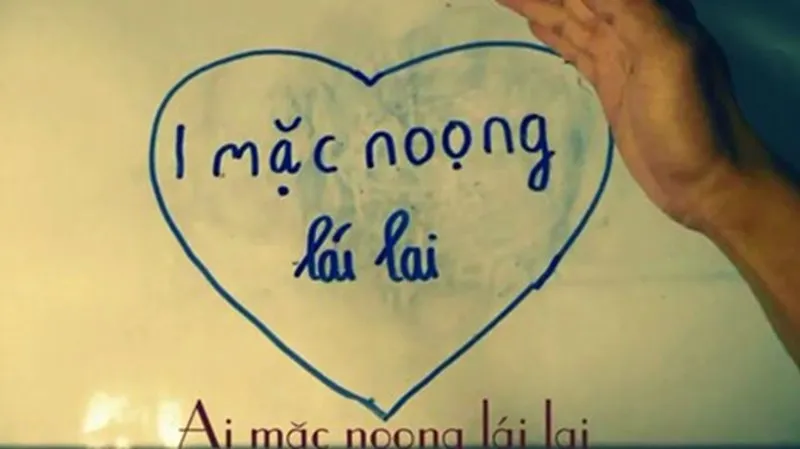 I mặc noọng
lái lai
Ai mặc noọng lái lai